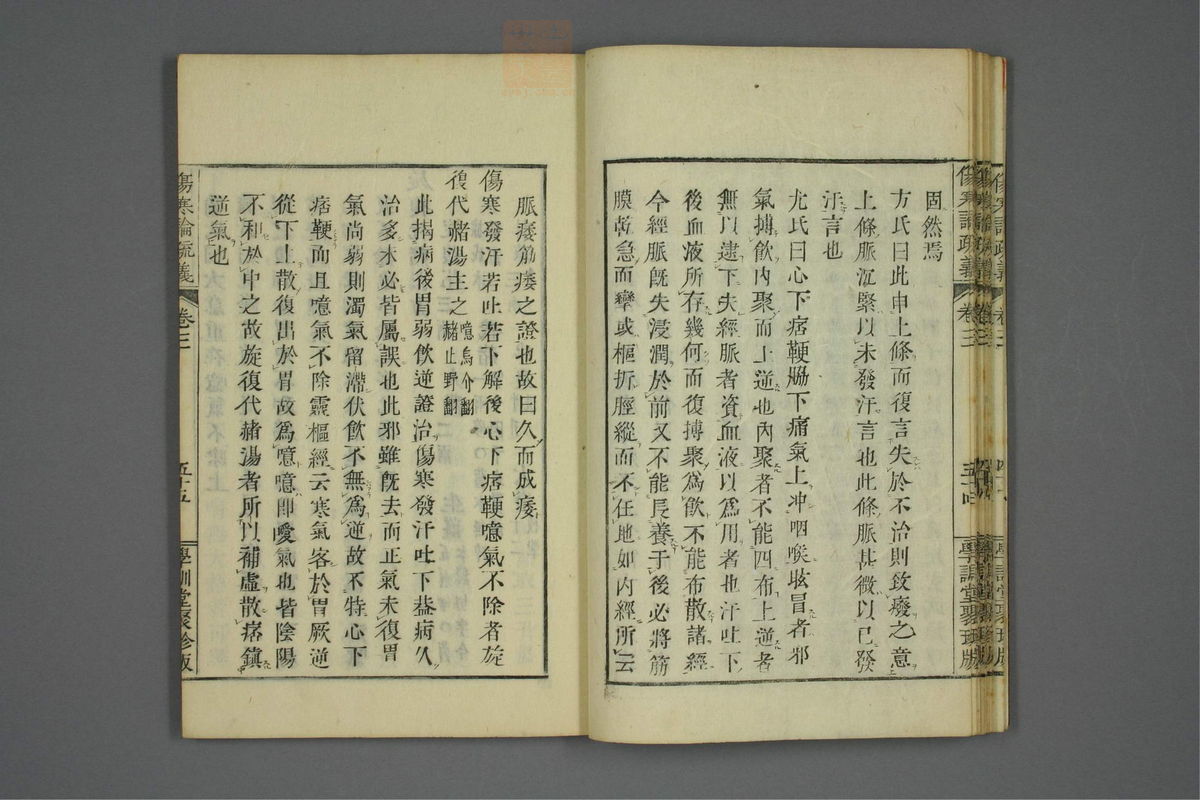 固然焉
方氏曰此申上條而復言失於不治則致癈之意
上條脈沉緊以未發汗言也此條脈甚微以已發
汗言也
尤氏曰心下痞鞕脇下痛氣上冲咽喉眩冒者邪
氣搏飲內聚而上逆也內聚者不能四布上逆者
無以逮下夫經脈者資血液以爲用者也汗吐下
後血液所存幾何而復搏聚爲飲不能布散諸經
今經脈旣失浸潤於前又不能長養于後必將筋
膜乾急而攣或樞折脛縱而不任地如內經所云
脈痿筋痿之證也故曰久而成痿
傷寒發汗若吐若下解後心下痞鞕噫氣不除者旋
復代赭湯主之 噫烏介翻 赭止野翻
此揭病後胃弱飲逆證治傷寒發汗吐下葢病久
治多未必皆屬誤也此邪雖旣去而正氣未復胃
氣尚弱則濁氣留滯伏飲不無爲逆故不特心下
痞鞕而且噫氣不除靈樞經云寒氣客於胃厥逆
從下上散復出於胃故爲噫噫卽噯氣也皆陰陽
不和於中之故旋復代赭湯者所以補虛散痞鎭
逆氣也
傷寒論疏義
卷三
五十五
學訓堂聚珍版